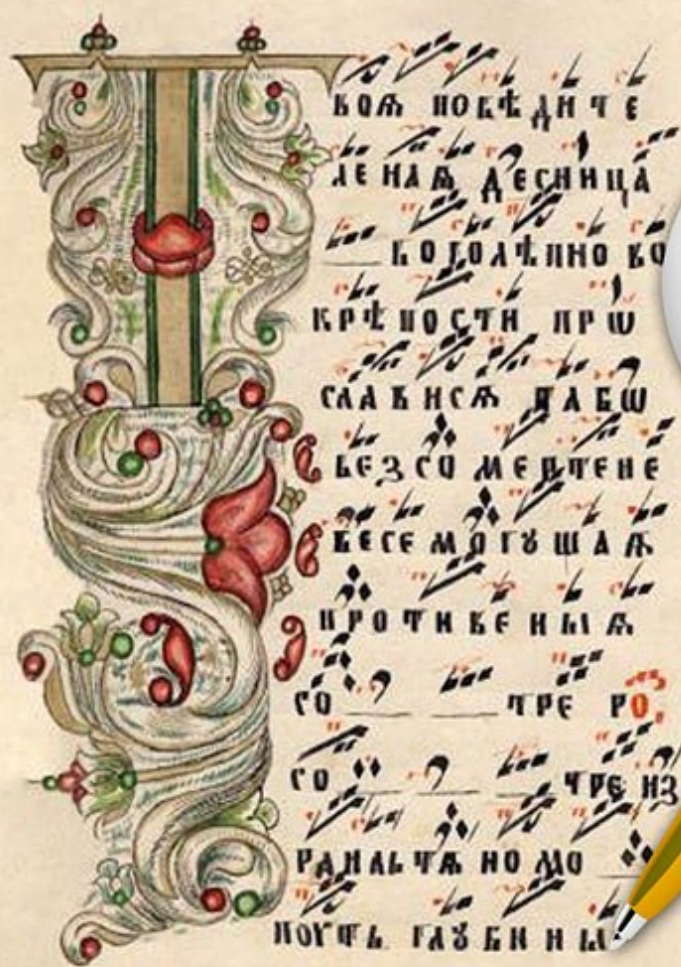 Твоѧ побѣдите
ленаѧ десница
боголѣпно во
крѣпости прѡ
слависѧ та бѡ
безсомертене
весемогꙋщаѧ
противеныѧ
со тре ро
со тре из
раильтѧномо
поуть глꙋбины